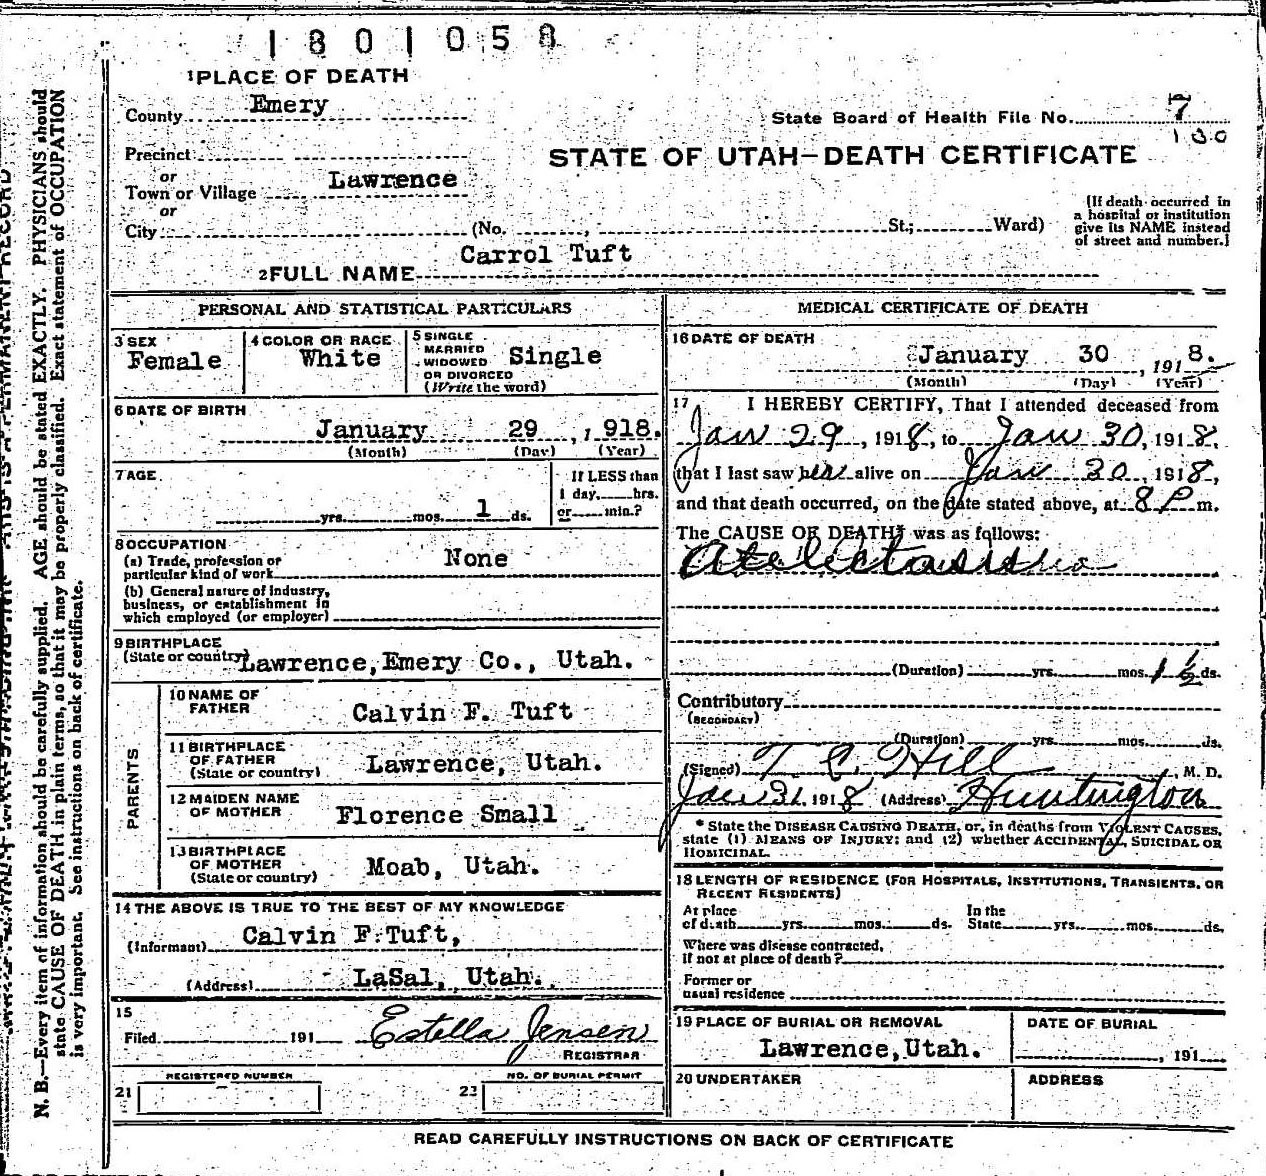 1801058
1 PLACE OF DEATH
County Emery
State Board of Health File No. 7
100
Precinct
or
Town or Village Lawrence
STATE OF UTAH—DEATH CERTIFICATE
or
City (No. , St.; Ward)
(If death occurred in
a hospital or institution
give its NAME instead
of street and number.)
2 FULL NAME Carrol Tuft
PERSONAL AND STATISTICAL PARTICULARS
3 SEX
Female
4 COLOR OR RACE
White
5 SINGLE
MARRIED
WIDOWED
OR DIVORCED
(Write the word)
Single
6 DATE OF BIRTH
January 29 , 1918.
(Month) (Day) (Year)
7 AGE
yrs. mos. 1 ds.
If LESS than
1 day, hrs.
or min.?
8 OCCUPATION
(a) Trade, profession or
particular kind of work None
(b) General nature of industry,
business, or establishment in
which employed (or employer)
9 BIRTHPLACE
(State or country) Lawrence, Emery Co., Utah.
PARENTS
10 NAME OF
FATHER Calvin F. Tuft
11 BIRTHPLACE
OF FATHER
(State or country) Lawrence, Utah.
12 MAIDEN NAME
OF MOTHER Florence Small
13 BIRTHPLACE
OF MOTHER
(State or country) Moab, Utah.
14 THE ABOVE IS TRUE TO THE BEST OF MY KNOWLEDGE
(Informant) Calvin F. Tuft,
(Address) LaSal, Utah.
15
Filed 191 Estella Jensen
REGISTRAR
REGISTERED NUMBER
21
NO. OF BURIAL PERMIT
22
MEDICAL CERTIFICATE OF DEATH
16 DATE OF DEATH
January 30 , 1918.
(Month) (Day) (Year)
17 I HEREBY CERTIFY, That I attended deceased from
Jan 29, 1918, to Jan 30, 1918,
that I last saw her alive on Jan 30, 1918,
and that death occurred, on the date stated above, at 8 P m.
The CAUSE OF DEATH* was as follows:
(Duration) yrs. mos. 1 ½ ds.
Contributory
(SECONDARY)
(Duration) yrs. mos. ds.
(Signed) T. C. Hill , M. D.
Jan 31, 1918 (Address) Huntington
* State the DISEASE CAUSING DEATH, or, in deaths from VIOLENT CAUSES,
state (1) MEANS OF INJURY; and (2) whether ACCIDENTAL, SUICIDAL OR
HOMICIDAL.
18 LENGTH OF RESIDENCE (FOR HOSPITALS, INSTITUTIONS, TRANSIENTS, OR
RECENT RESIDENTS)
At place
of death yrs. mos. ds.
In the
State yrs. mos. ds.
Where was disease contracted,
if not at place of death?
Former or
usual residence
19 PLACE OF BURIAL OR REMOVAL
Lawrence, Utah.
DATE OF BURIAL
, 191
20 UNDERTAKER
ADDRESS
READ CAREFULLY INSTRUCTIONS ON BACK OF CERTIFICATE
N. B.—Every item of information should be carefully supplied. AGE should be stated EXACTLY. PHYSICIANS should
state CAUSE OF DEATH in plain terms, so that it may be properly classified. Exact statement of OCCUPATION
is very important. See instructions on back of certificate.